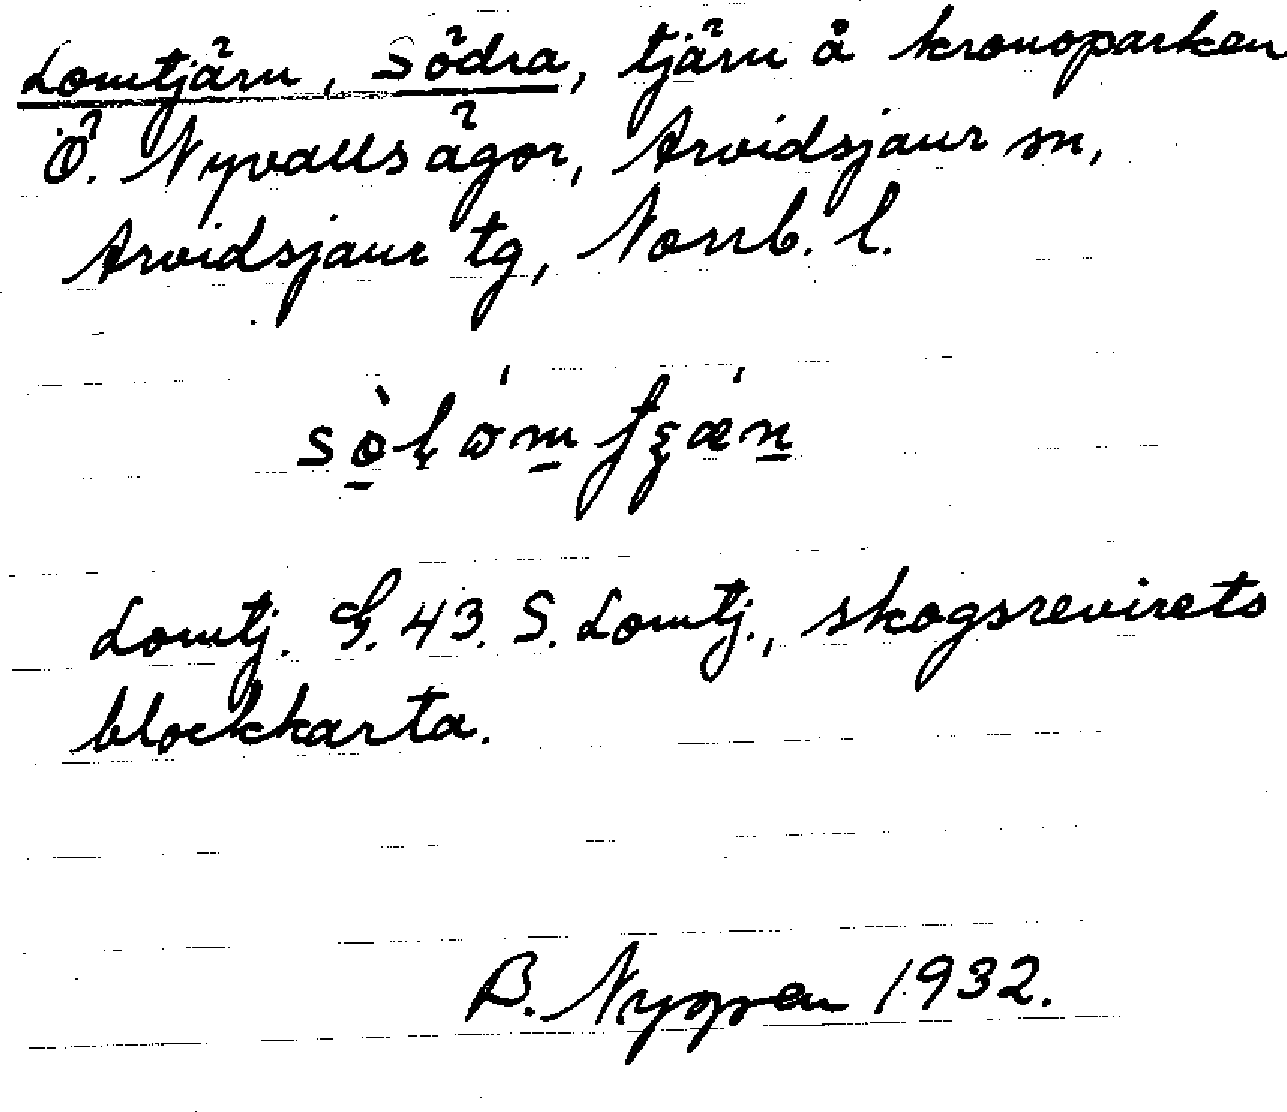 Lomtjärn, Södra, tjärn å kronoparken
Ö. Nyvallsägor, Arvidsjaur sn,
Arvidsjaur tg, Norrb. l.
Lomtj. G. 43. S. Lomtj., skogsrevirets
blockkarta.
B. Nyppen 1932.